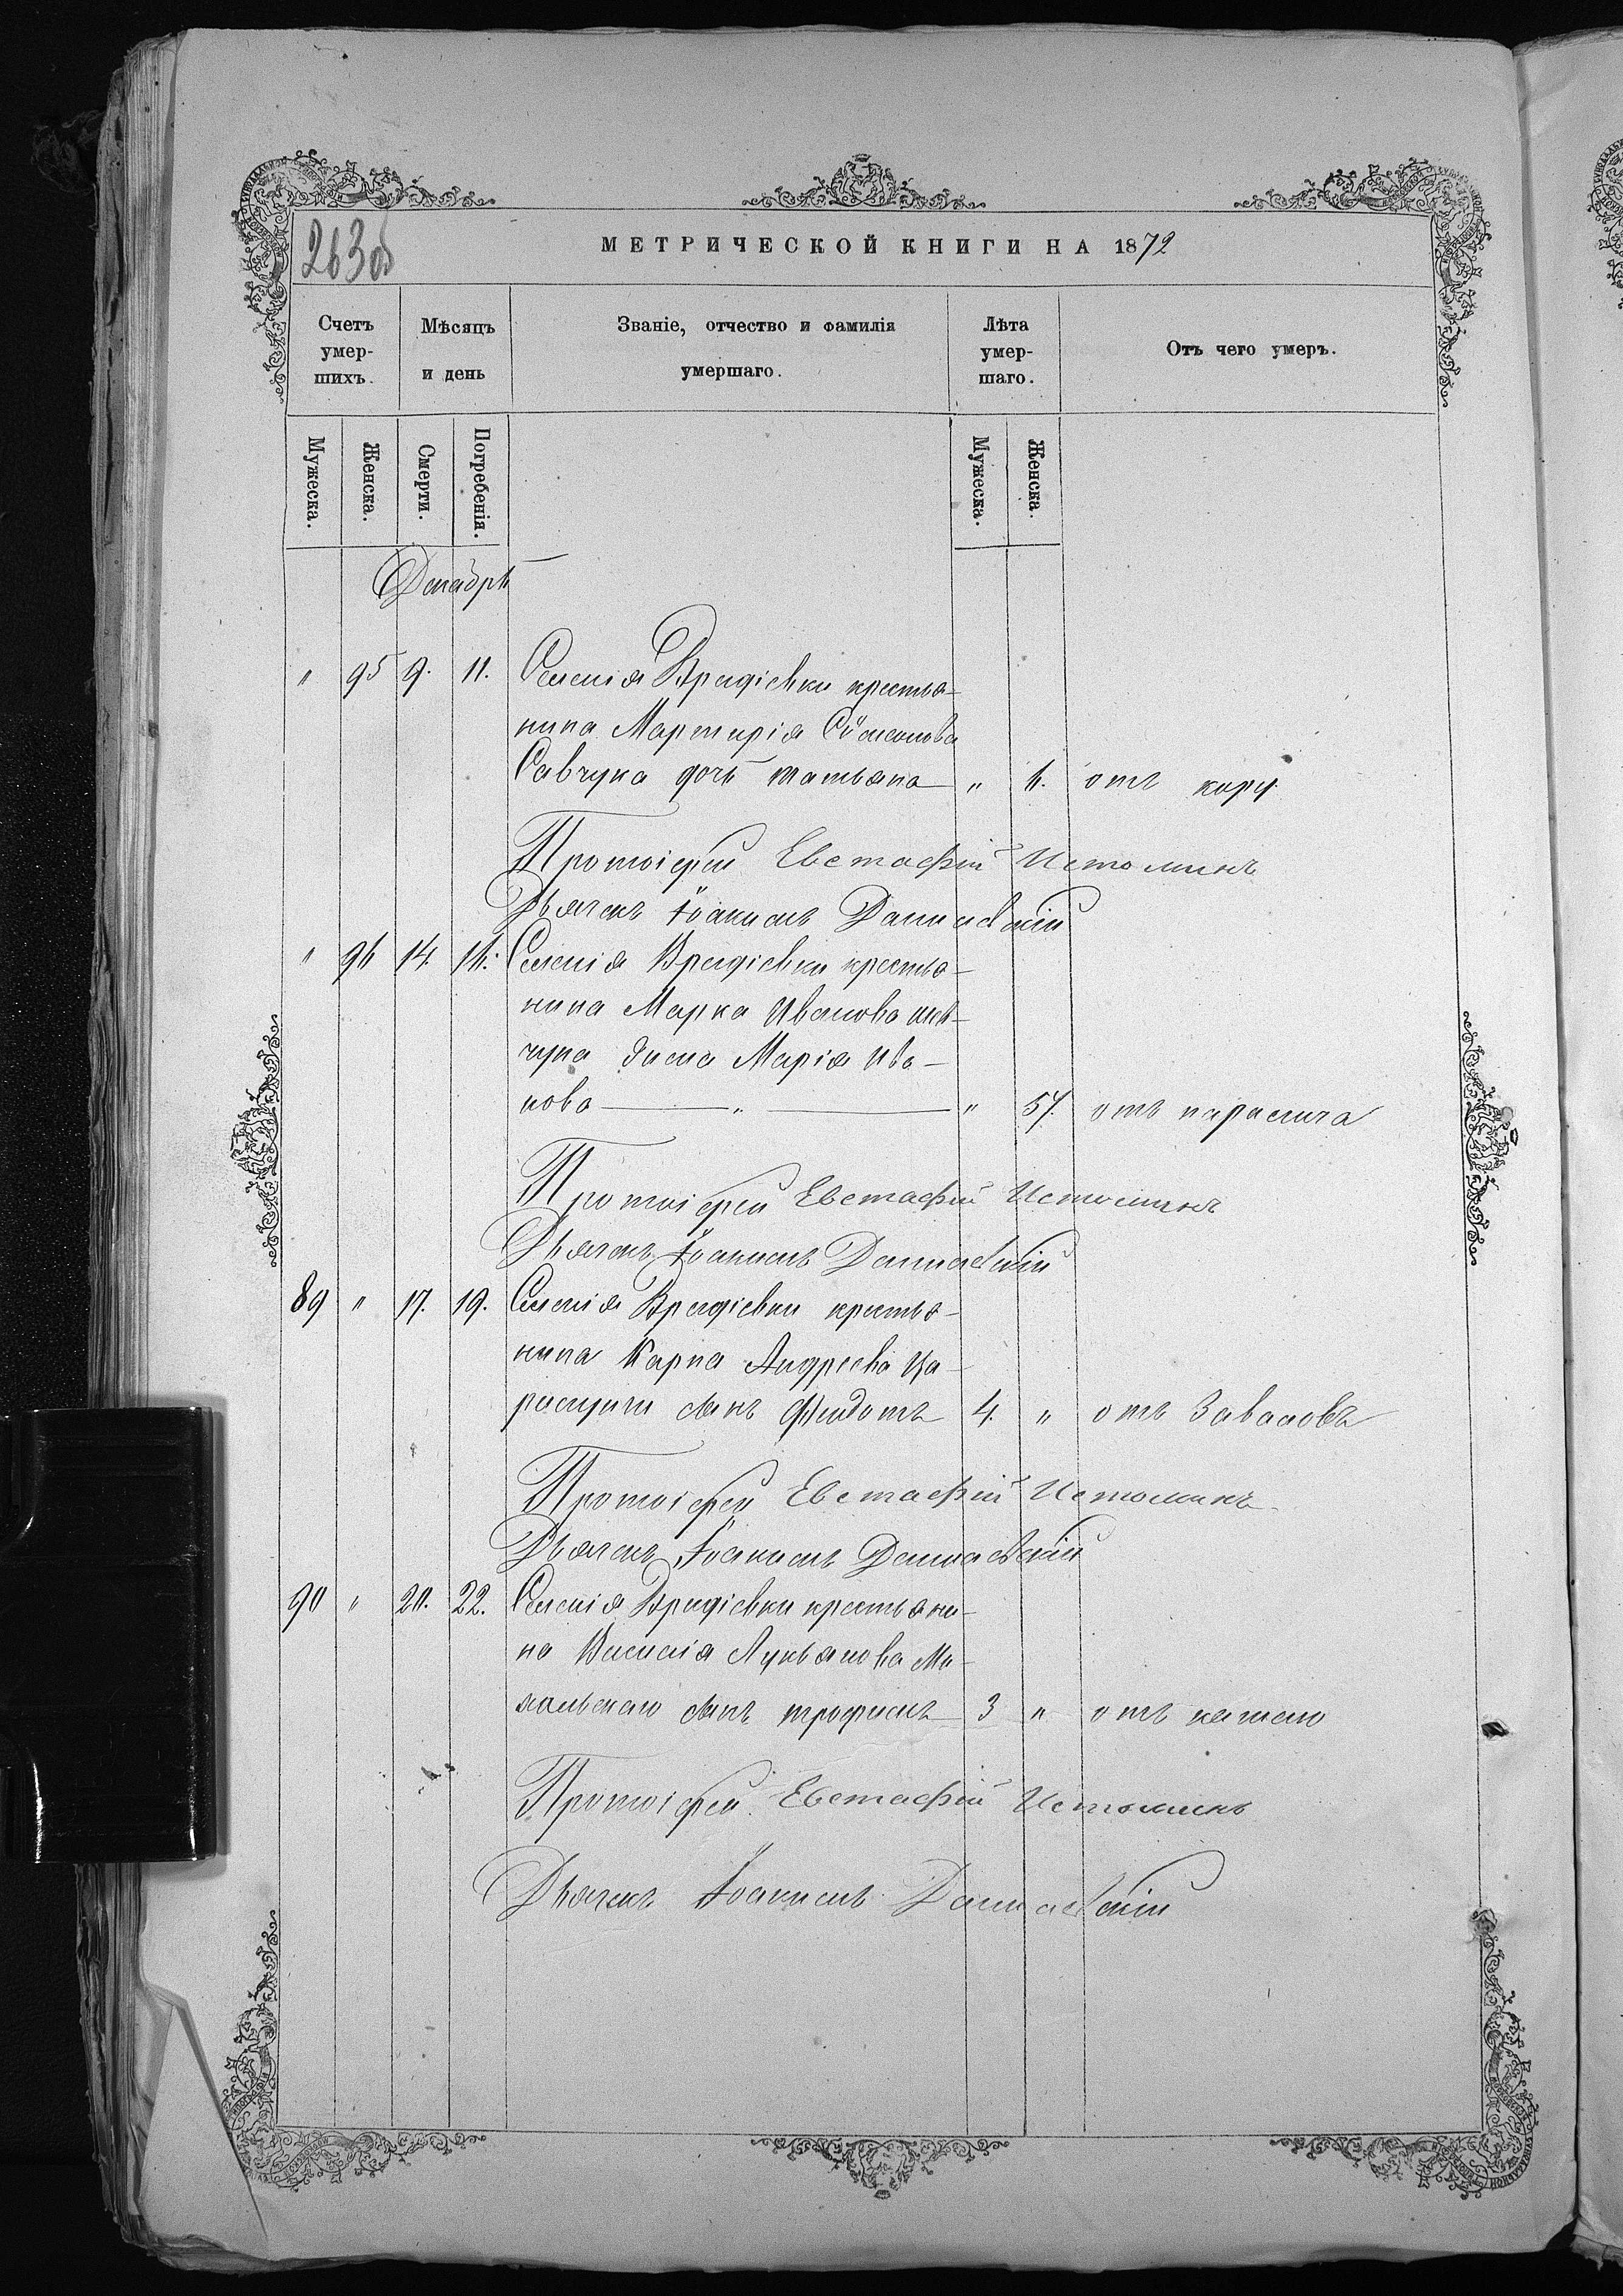 263об
МЕТРИЧЕСКОЙ КНИГИ НА 1872
Счетъ умер-шихъ.
Мѣсяцъ и день
Званіе, отчество и фамилія умершаго.
Лѣта умер-шаго.
Отъ чего умеръ.
Мужеска. Женска. Смерти. Погребенія. Мужеска. Женска.
Декабрь
" 95 9. 11. Селенія Врадіевки крестья-
нина Мартирія Сѵмеонова
Савчука дочь Татьяна " 6. отъ кору
Протоіерей Евстафій Истоминъ
Дьячекъ Іоакимъ
" 96 14. 16. Селенія Врадіевки крестья-
нина Марка Иванова Шев-
чука жена Марія Ива-
нова " " 57. отъ паралича
Протоіерей Евстафій Истоминъ
Дьячекъ Іоакимъ
89 " 17. 19. Селенія Врадіевки крестья-
нина Карпа Андреева
сынъ Федотъ 4. " отъ Заваловъ
Протоіерей Евстафій Истоминъ
Дьячекъ Іоакимъ
90 " 20. 22. Селенія Врадіевки крестьяни-
на Василія Лукьянова Ми-
хальскаго сынъ Трофимъ 3 " отъ кашлю
Протоіерей Евстафій Истоминъ
Дьячекъ Іоакимъ